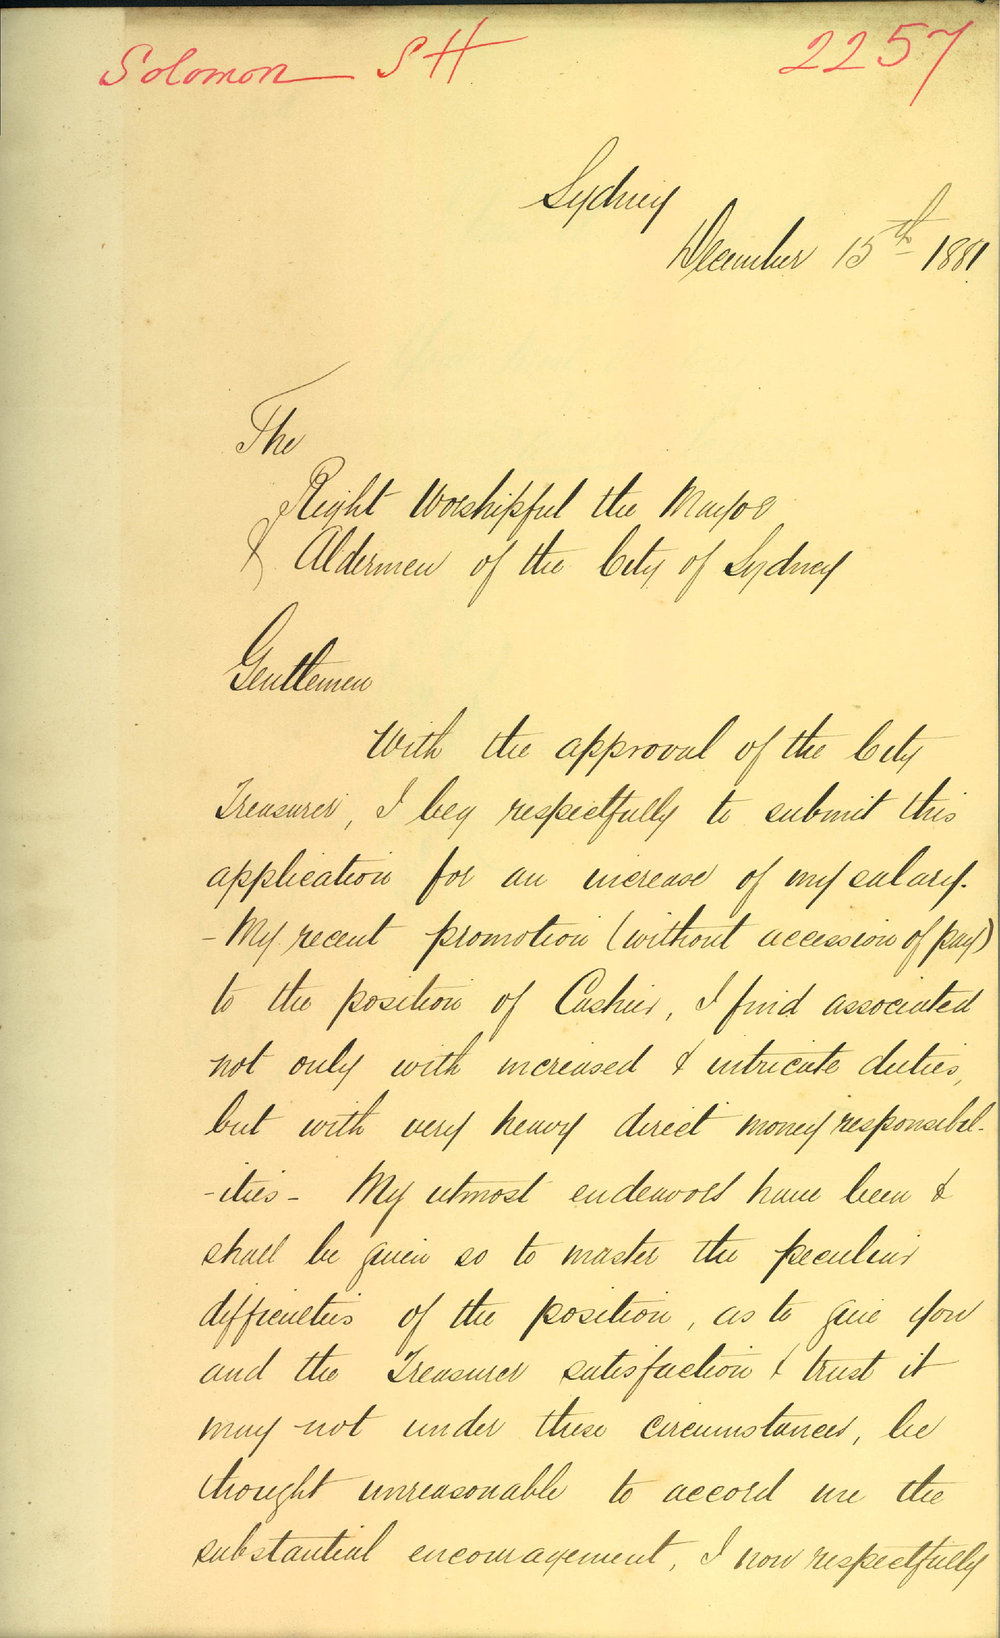 Solomon S H 2257
Sydney
December 15th 1881
The
Right Worshipful the Mayor
& Aldermen of the City of Sydney
Gentlemen
With the approval of the City
Treasurer, I beg respectfully to submit this
application for an increase of my salary.
- My recent promotion (without accession of pay)
to the position of Cashier, I find associated
not only with increased & intricate duties,
but with very heavy direct money responsibil-
-ities - My utmost endeavors have been &
shall be given so to master the peculiar
difficulties of the position, as to give you
and the Treasurer satisfaction & trust it
may not under these circumstances, be
thought unreasonable to accord me the
substantial encouragement, I now respectfully